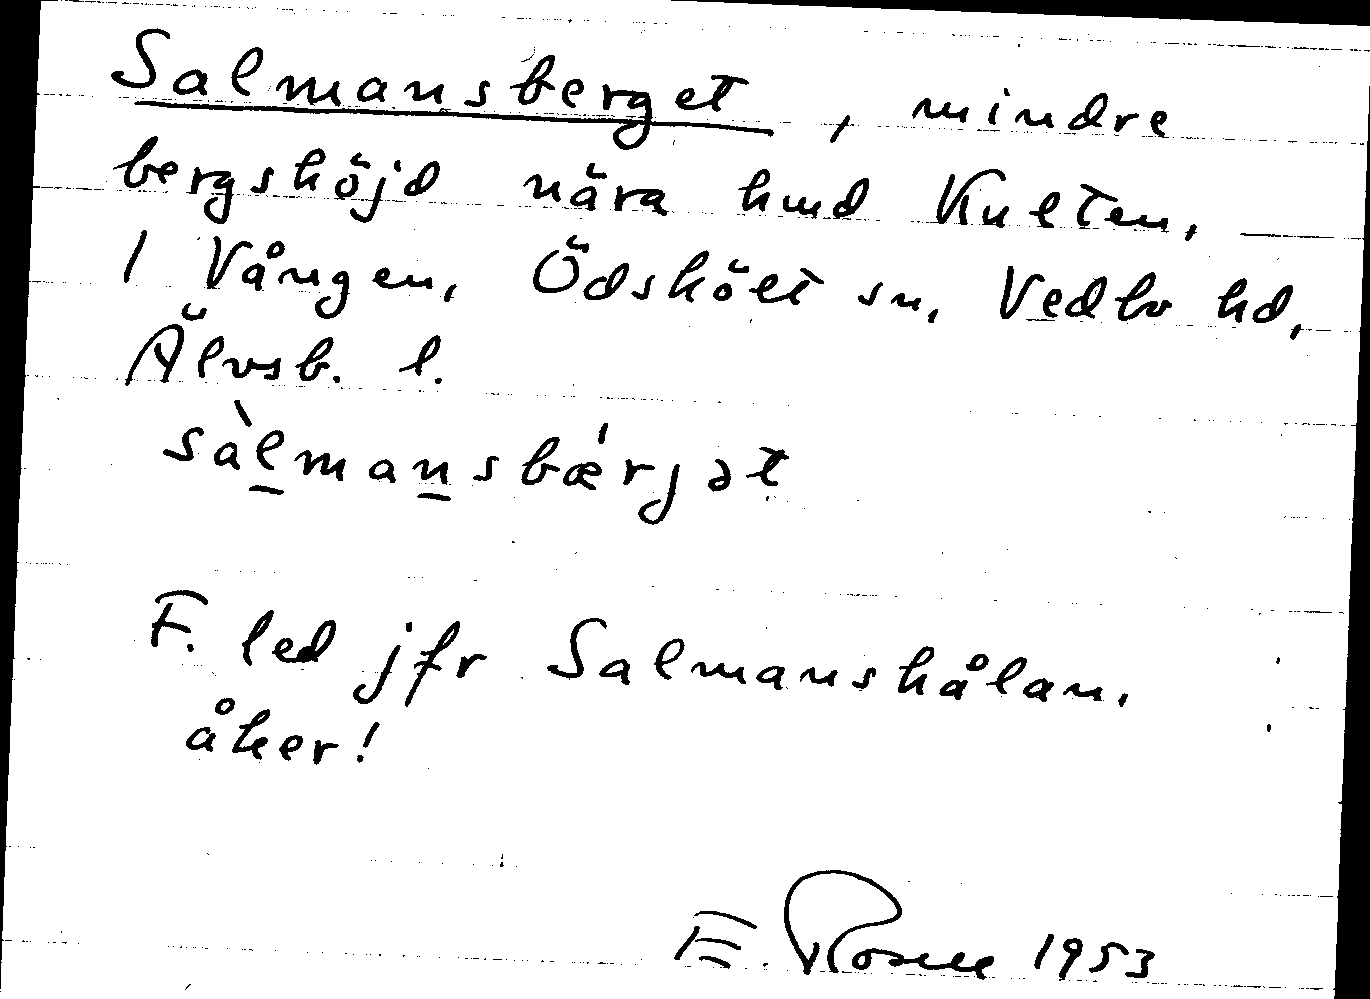 Salmansberget, mindre
bergshöjd nära hmd Kulten,
1 Vången, Ödskölt sn, Vedbo hd,
Älvsb. l.
sàlmansbǽrjət
F. led jfr Salmanskålan,
åker!
E. Rosell 1953